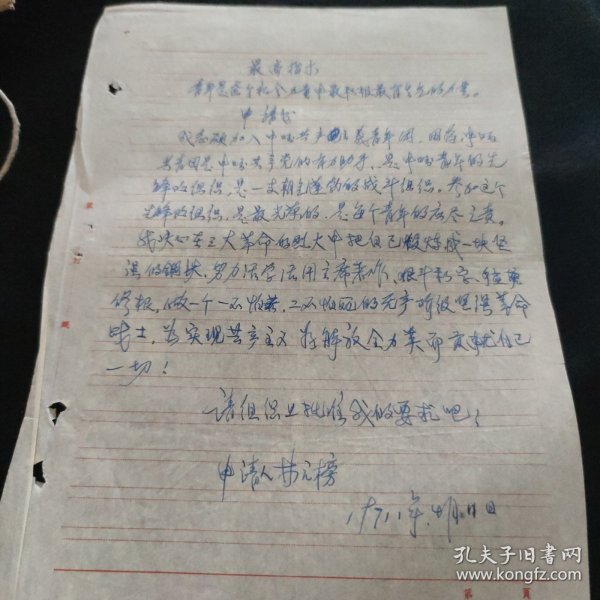 最高指示
青年是整个社会力量中最积极最有生气的力量。
申请书
我志愿加入中国共产主义青年团，因为中国
共青团是中国共产党的有力助手，是中国青年的先
锋的组织，是一支朝气蓬勃的战斗组织。参加这个
先锋的组织，是最光荣的，是每个青年的应尽之责。
我决心在三大革命的烈火中把自己锻炼成一块坚
强的钢铁，努力活学活用主席著作，狠斗私字，
修根，做一个一不怕苦，二不怕死的无产阶级坚强革命
战士，为实现共产主义为解放全人类而贡献自己
一切！
请组织上批准我的要求吧！
申请人 林元榜
1971年4月11日
孔夫子旧书网
www.kongfz.com
第 页